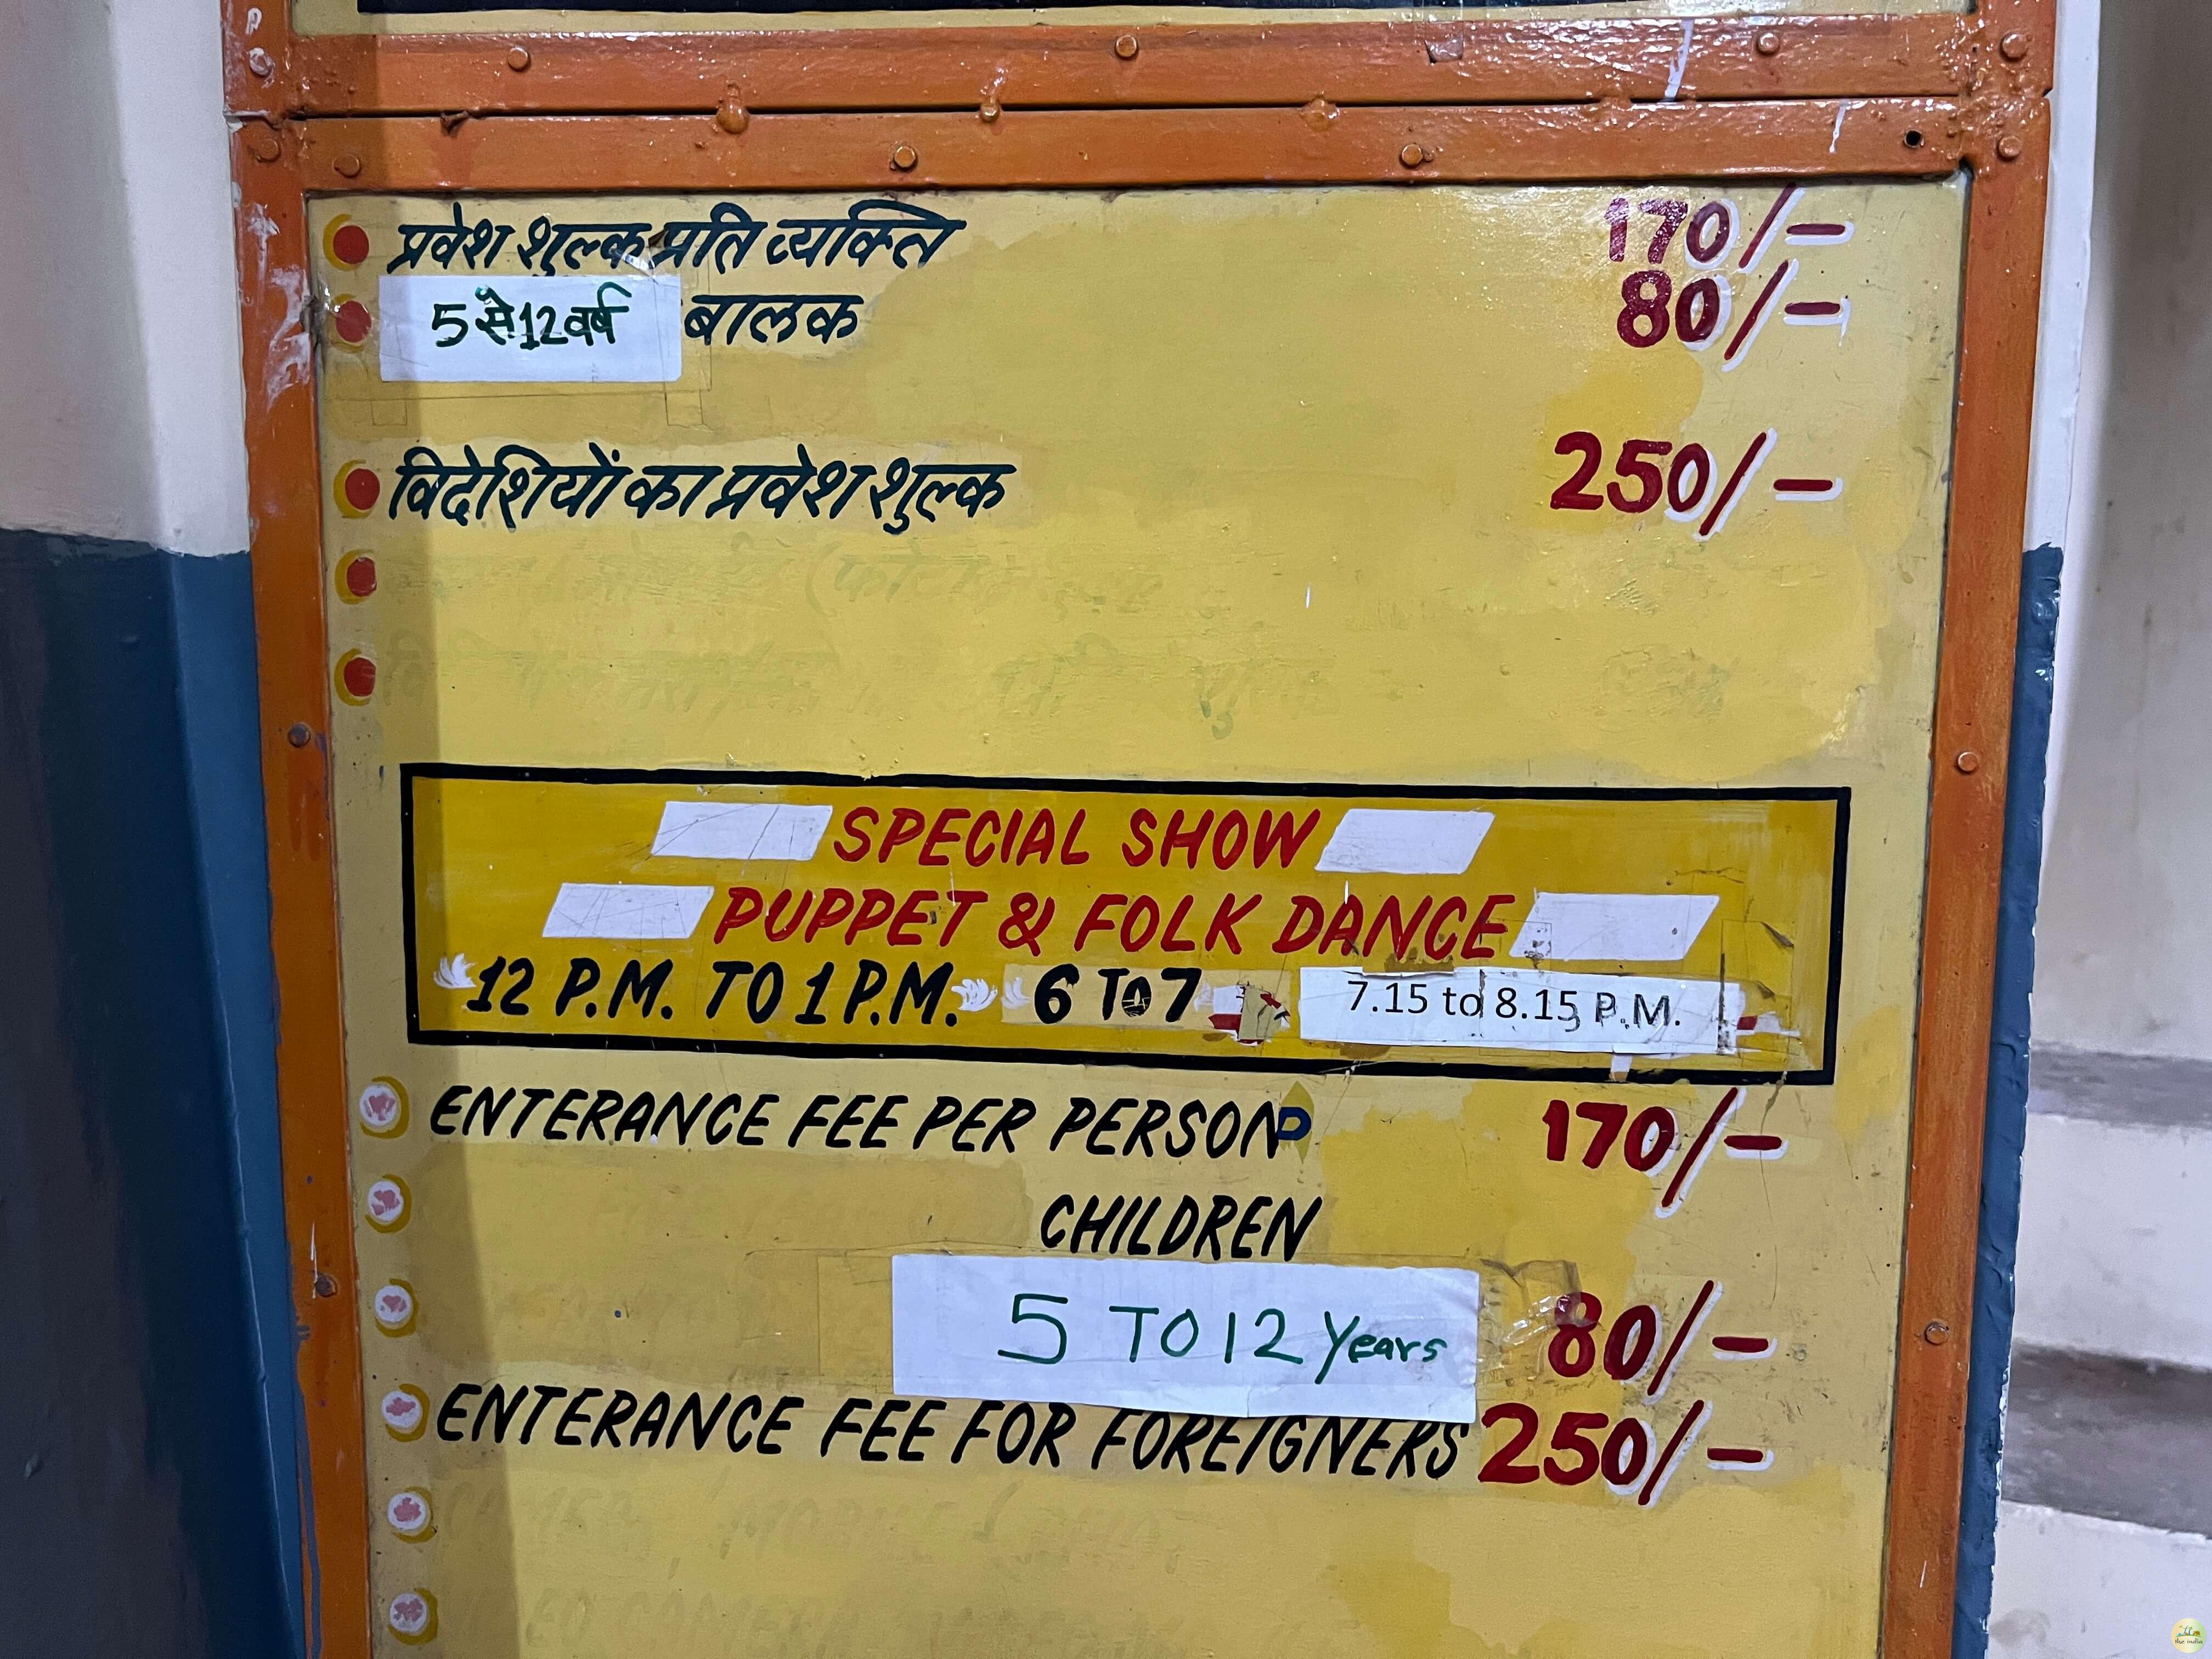 प्रवेश शुल्क प्रति व्यक्ति 170/-
5 से 12 वर्ष बालक 80/-
विदेशियों का प्रवेश शुल्क 250/-
SPECIAL SHOW
PUPPET & FOLK DANCE
12 P.M. TO 1 P.M. 6 TO 7 7.15 to 8.15 P.M.
ENTERANCE FEE PER PERSON 170/-
CHILDREN
5 TO 12 Years 80/-
ENTERANCE FEE FOR FOREIGNERS 250/-